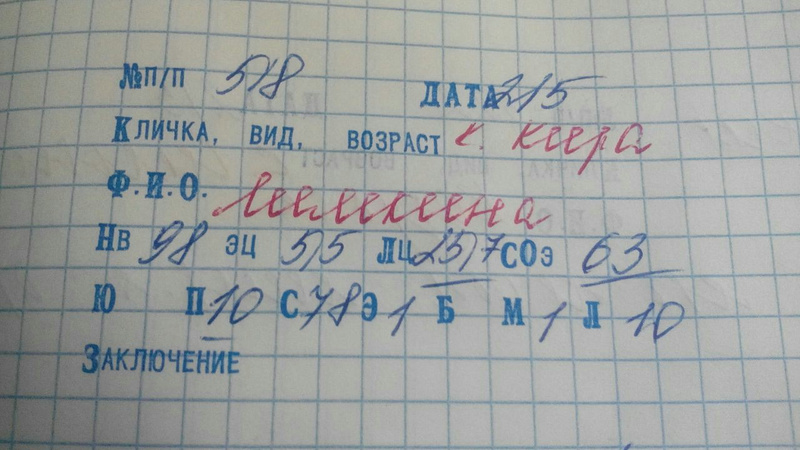 №П/П 518 ДАТА 21/5
КЛИЧКА, ВИД, ВОЗРАСТ к. Кира
Ф.И.О. Шелехина
НВ 98 ЭЦ 5,5 ЛЦ 25,7 СОЭ 63
Ю П 10 С 78 Э 1 Б М 1 Л 10
ЗАКЛЮЧЕНИЕ